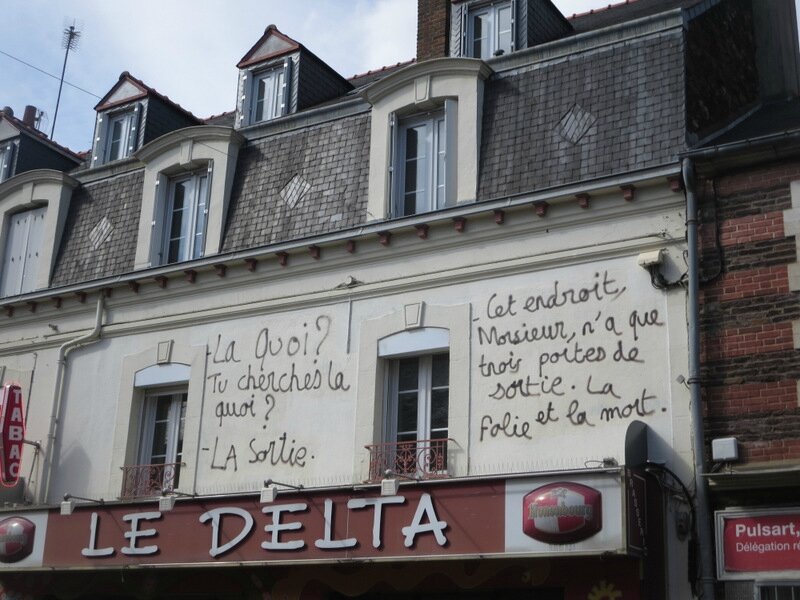 - La quoi?
Tu cherches la
quoi?
- LA sortie.
- Cet endroit,
Monsieur, n'a que
trois portes de
sortie. La
folie et la mort.
TABAC
LE DELTA
Kronenbourg
Pulsart,